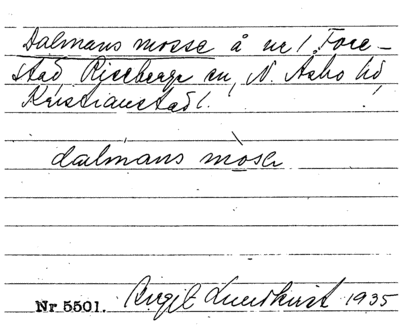 Dalmans mosse å nr 1 Fore-
stad, Riseberga sn, N. Åsbo hd,
Kristianstad l.
dálmans mòsɛ
Nr 5501. Birgit Lundkvist 1935